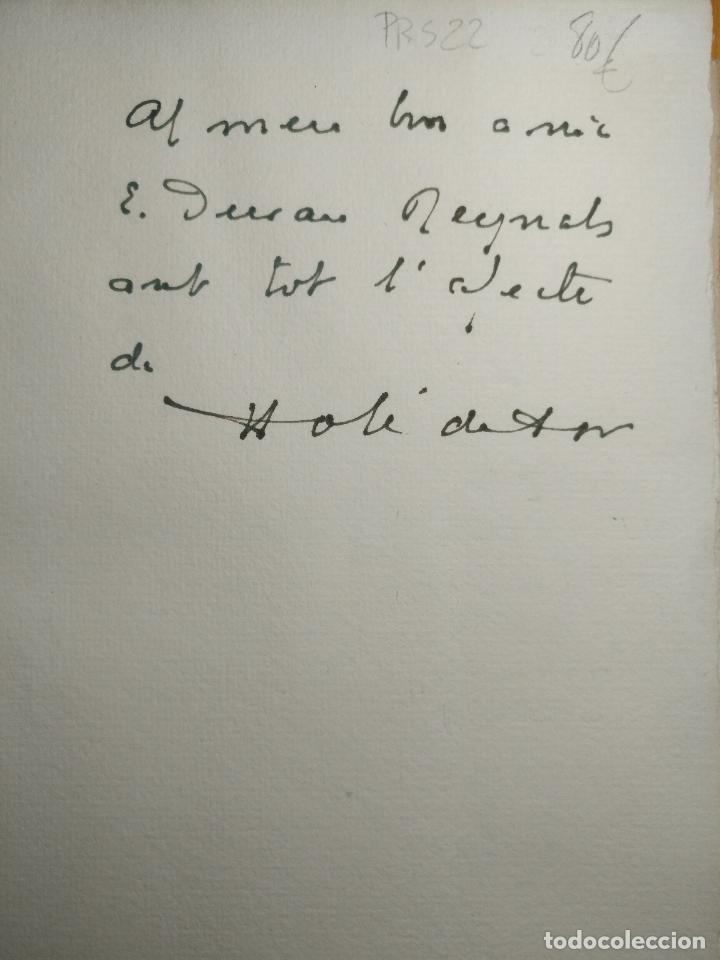 PRS22 80€
Al meu bon amic
E. Duran Reynals
amb tot l'afecte
de
todocoleccion